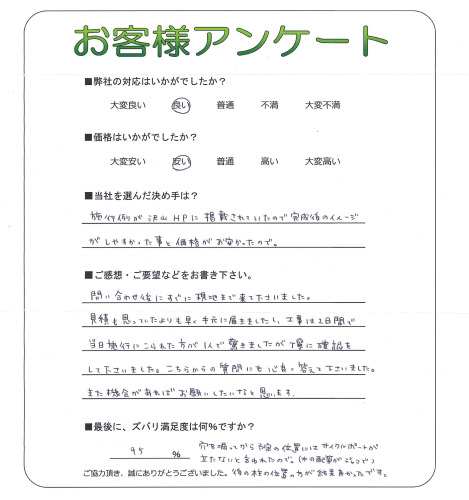 お客様アンケート
■弊社の対応はいかがでしたか？
大変良い 良い 普通 不満 大変不満
■価格はいかがでしたか？
大変安い 安い 普通 高い 大変高い
■当社を選んだ決め手は？
施行例が沢山HPに掲載されていたので完成後のイメージ
がしやすかった事と価格がお安かったので。
■ご感想・ご要望などをお書き下さい。
問い合わせ後にすぐに現地まで来て下さいました。
見積も思っていたよりも早く手元に届きましたし、工事は2日間で
当日施行にこられた方が1人で驚きましたが丁寧に確認を
して下さいました。こちらからの質問にも心良く答えて下さいました。
また機会があればお願いしたいなと思います。
■最後に、ズバリ満足度は何％ですか？
95 ％
穴を掘ってから予定の位置にはサイクルポートが
立たないと言われたので。(水の配管が
ご協力頂き、誠にありがとうございました。
後の柱の位置の方が結果良かったです。